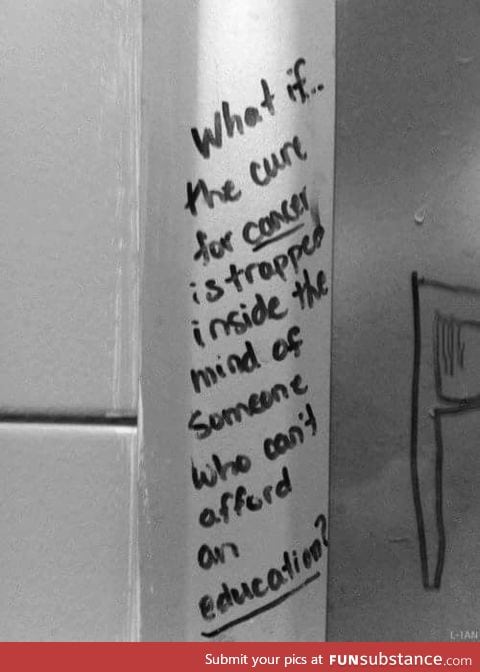 What if..
the cure
for cancer
is trapped
inside the
mind of
someone
who can't
afford
an
education?
L-IAN
Submit your pics at FUNsubstance.com